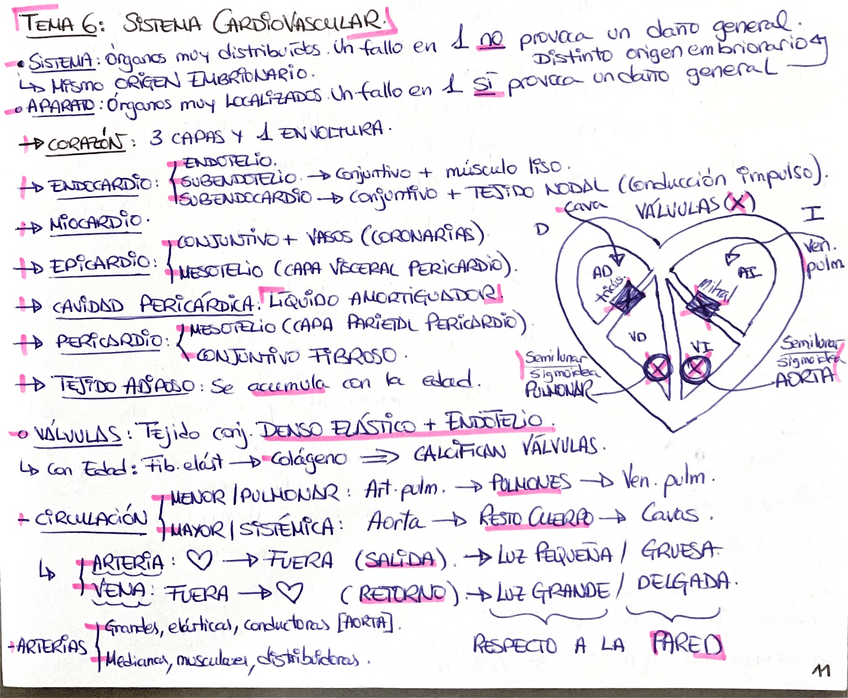 TEMA 6: SISTEMA CARDIOVASCULAR.
• SISTEMA: Órganos muy distribuidos. Un fallo en 1 no provoca un daño general.
↳ MISMO ORIGEN EMBRIONARIO. Distinto origen embrionario
• APARATO: Órganos muy LOCALIZADOS. Un fallo en 1 sí provoca un daño general
→ CORAZÓN: 3 CAPAS Y 1 ENVOLTURA.
→ ENDOCARDIO: ENDOTELIO.
SUBENDOTELIO → Conjuntivo + músculo liso.
SUBENDOCARDIO → Conjuntivo + TEJIDO NODAL (Conducción impulso).
→ MIOCARDIO.
→ EPICARDIO: CONJUNTIVO + VASOS (CORONARIAS).
MESOTELIO (CAPA VISCERAL PERICARDIO).
→ CAVIDAD PERICÁRDICA: LÍQUIDO AMORTIGUADOR.
→ PERICARDIO: MESOTELIO (CAPA PARIETAL PERICARDIO).
CONJUNTIVO FIBROSO.
→ TEJIDO ADIPOSO: Se acumula con la edad.
Cava VÁLVULAS (X)
D I
Ven. pulm
AD AI
tricús. mitral
VD VI
Semilunar
sigmoidea
PULMONAR
Semilunar
sigmoidea
AORTA
• VÁLVULAS: Tejido conj. DENSO ELÁSTICO + ENDOTELIO.
↳ Con Edad: Fib. elást → Colágeno ⇒ CALCIFICAN VÁLVULAS.
- CIRCULACIÓN MENOR/PULMONAR: Art. pulm. → PULMONES → Ven. pulm.
MAYOR/SISTÉMICA: Aorta → RESTO CUERPO → Cavas.
↳ ARTERIA: ♡ → FUERA (SALIDA). → LUZ PEQUEÑA / GRUESA.
VENA: FUERA → ♡ (RETORNO). → LUZ GRANDE / DELGADA.
RESPECTO A LA PARED
- ARTERIAS Grandes, elásticas, conductoras [AORTA].
Medianas, musculares, distribuidoras.
11